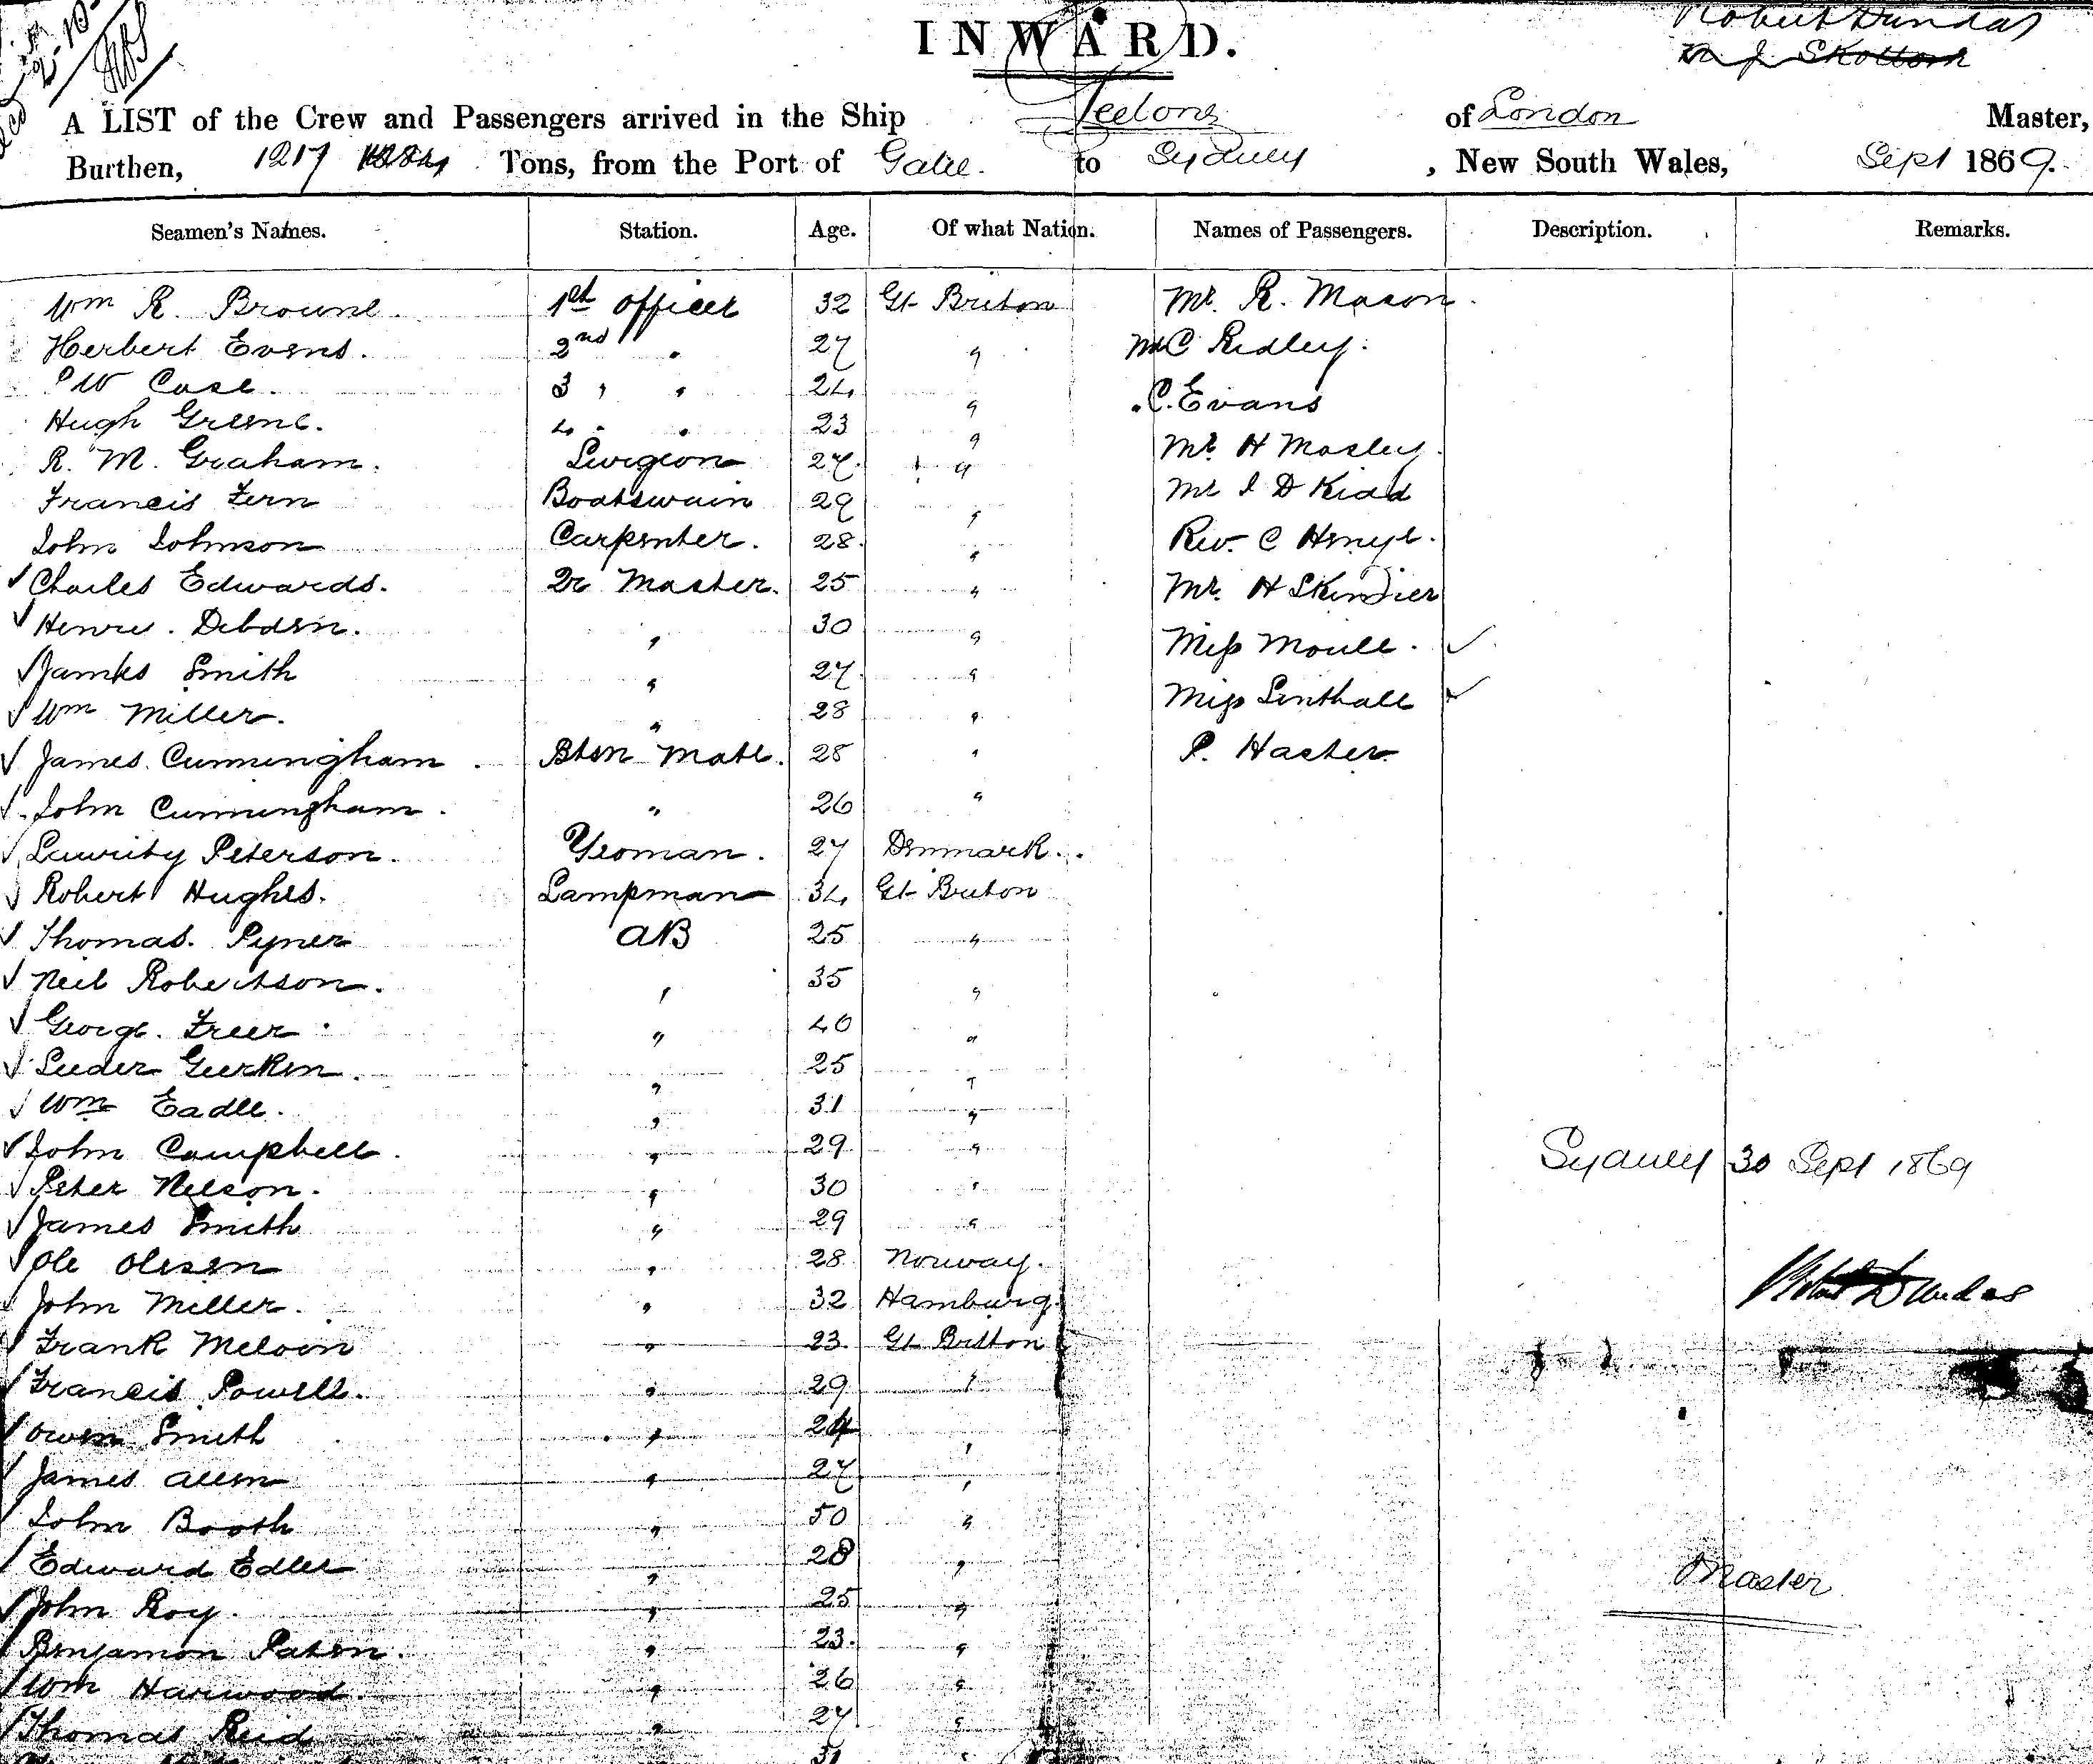 INWARD.
Robert Dundas
A LIST of the Crew and Passengers arrived in the Ship of London Master,
Burthen, 1217 Tons, from the Port of Galle to Sydney, New South Wales, Sept 1869.
Seamen's Names. Station. Age. Of what Nation. Names of Passengers. Description. Remarks.
Wm R. Browne. 1st Officer 32 Gt Briton Mr. R. Mason.
Herbert Evens. 2nd " 27 " Mr C Ridley.
W Case. 3 " " 24 " " C. Evans
Hugh Greene. 4 " " 23 " Mr. H Mosley.
R. M. Graham. Surgeon 27 " Mr I D Kidd
Francis Fern Boatswain 29 " Rev. C
John Johnson Carpenter. 28 " Mr. H
Charles Edwards. Qr Master. 25 " Miss Moule.
Henry. Debden. " 30 " Miss Linthall
James Smith " 27 " P. Hacter
Wm Miller. " 28 "
James Cunningham Btsn Mate. 28 "
John Cunningham. " 26 "
Peterson. Yeoman. 27 Denmark.
Robert Hughes. Lampman 34 Gt Briton
Thomas. Pyner AB 25 "
Neil Robertson. " 35 "
George. Freer " 40 "
Luder Geerken. " 25 "
Wm Eadle. " 31 "
John Campbell. " 29 "
Peter Nelson. " 30 "
James Smith " 29 "
Ole Olesen " 28 Norway.
John Miller. " 32 Hamburg
Frank Melvin " 23 Gt Briton
Francis Powell. " 29 "
Owen Smith " 24 "
James Allen " 27 "
John Booth " 50 "
Edward Edler " 28 "
John Roy. " 25 "
Benjamon Paten. " 23. "
Wm Harwood. " 26 "
Thomas Reid " 27 "
31 "
Sydney 30 Sept 1869
Robert Dundas
Master